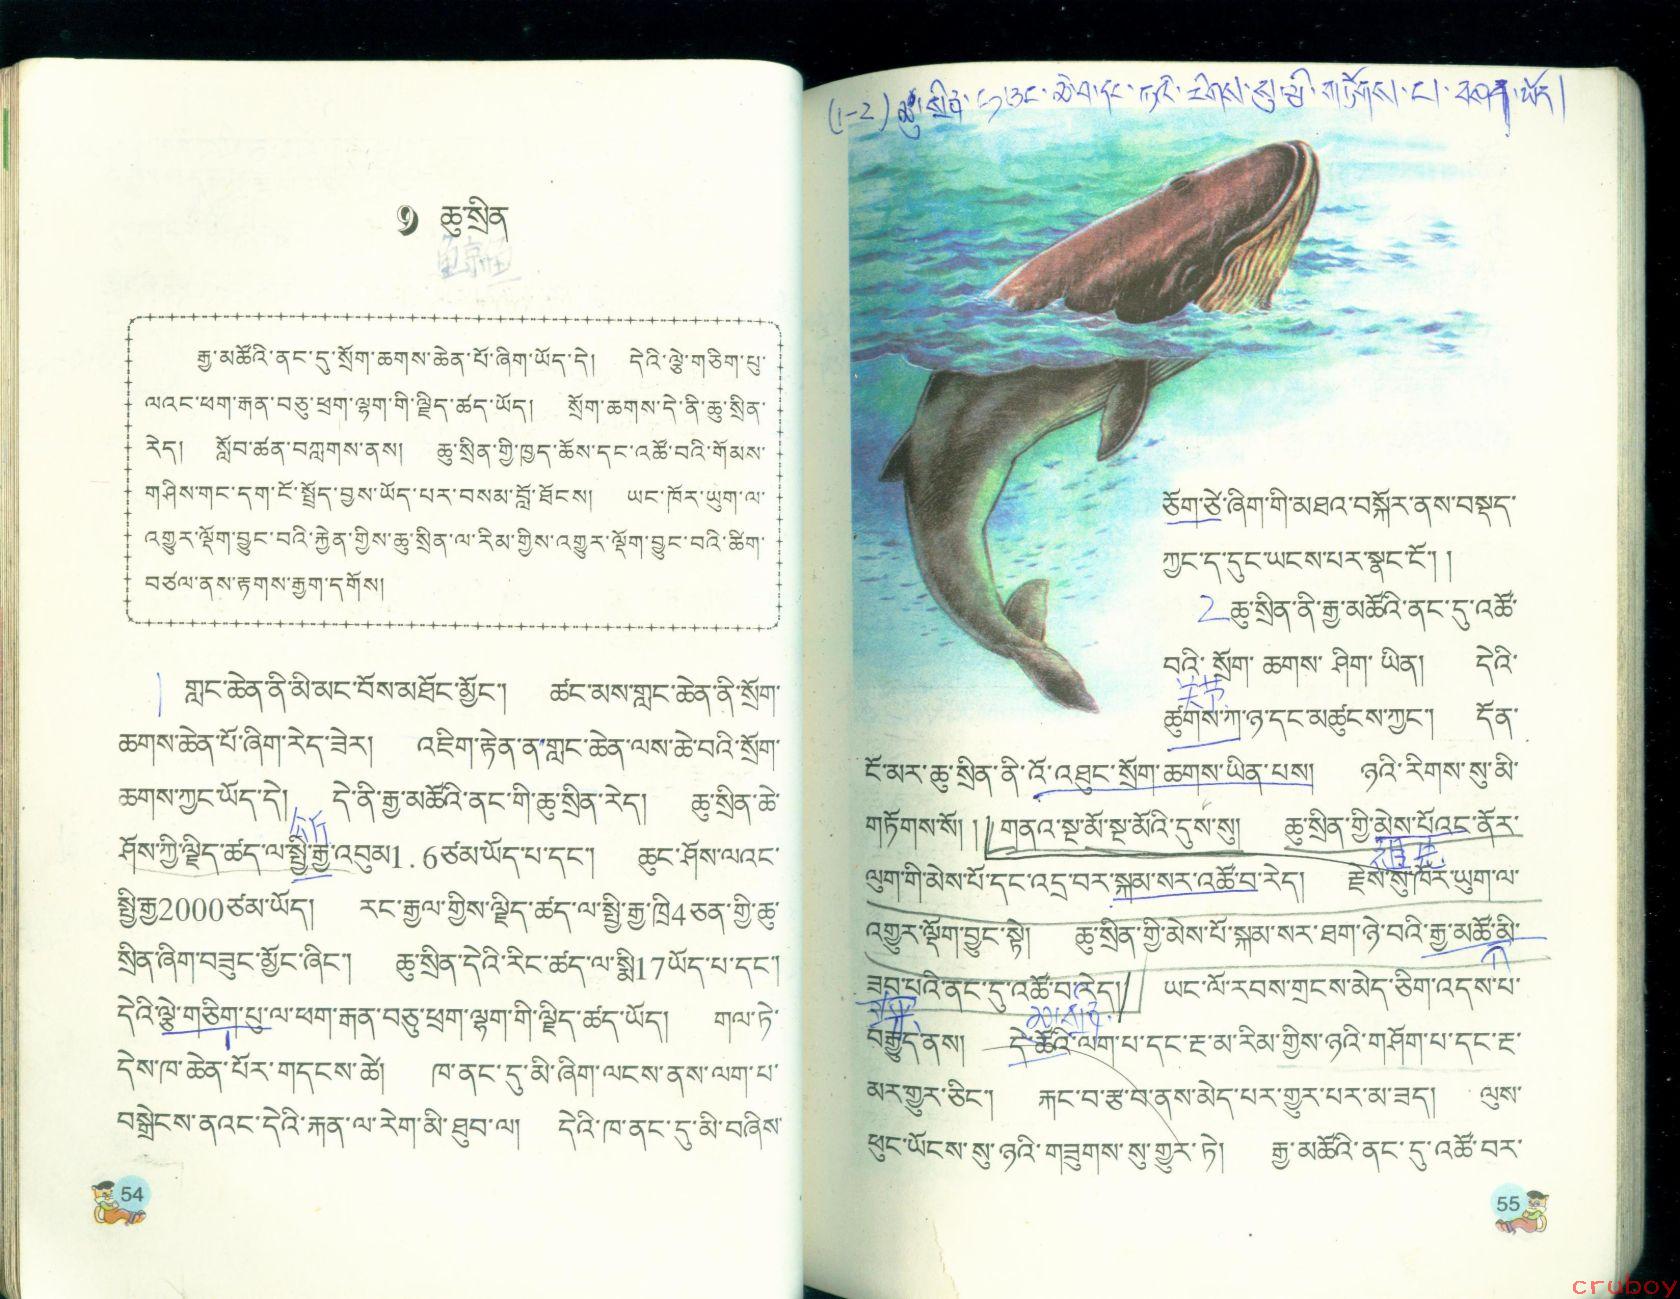 ༩ ཆུ་སྲིན
鲸鱼
རྒྱ་མཚོའི་ནང་དུ་སྲོག་ཆགས་ཆེན་པོ་ཞིག་ཡོད་དེ། དེའི་ལྕེ་གཅིག་པུ་
ལའང་ཕག་རྒན་བཅུ་ཕྲག་ལྷག་གི་ལྗིད་ཚད་ཡོད། སྲོག་ཆགས་དེ་ནི་ཆུ་སྲིན་
རེད། སློབ་ཚན་བཀླགས་ནས། ཆུ་སྲིན་གྱི་ཁྱད་ཆོས་དང་འཚོ་བའི་གོམས་
གཤིས་གང་དག་ངོ་སྤྲོད་བྱས་ཡོད་པར་བསམ་བློ་ཐོངས། ཡང་ཁོར་ཡུག་ལ་
འགྱུར་ལྡོག་བྱུང་བའི་རྐྱེན་གྱིས་ཆུ་སྲིན་ལ་རིམ་གྱིས་འགྱུར་ལྡོག་བྱུང་བའི་ཚིག་
བཙལ་ནས་རྟགས་རྒྱག་དགོས།
1 གླང་ཆེན་ནི་མི་མང་པོས་མཐོང་མྱོང་། ཚང་མས་གླང་ཆེན་ནི་སྲོག་
ཆགས་ཆེན་པོ་ཞིག་རེད་ཟེར། འཇིག་རྟེན་ན་གླང་ཆེན་ལས་ཆེ་བའི་སྲོག་
ཆགས་ཀྱང་ཡོད་དེ། དེ་ནི་རྒྱ་མཚོའི་ནང་གི་ཆུ་སྲིན་རེད། ཆུ་སྲིན་ཆེ་
公斤
ཤོས་ཀྱི་ལྗིད་ཚད་ལ་སྤྱི་རྒྱ་འབུམ1.6ཙམ་ཡོད་པ་དང་། ཆུང་ཤོས་ལའང་
སྤྱི་རྒྱ2000ཙམ་ཡོད། རང་རྒྱལ་གྱིས་ལྗིད་ཚད་ལ་སྤྱི་རྒྱ་ཁྲི4ཅན་གྱི་ཆུ་
སྲིན་ཞིག་བཟུང་མྱོང་ཞིང་། ཆུ་སྲིན་དེའི་རིང་ཚད་ལ་སྨི17ཡོད་པ་དང་།
དེའི་ལྕེ་གཅིག་པུ་ལ་ཕག་རྒན་བཅུ་ཕྲག་ལྷག་གི་ལྗིད་ཚད་ཡོད། གལ་ཏེ་
དེས་ཁ་ཆེན་པོར་གདངས་ཚེ། ཁ་ནང་དུ་མི་ཞིག་ལངས་ནས་ལག་པ་
བསྒྲེངས་ནའང་དེའི་རྐན་ལ་རེག་མི་ཐུབ་ལ། དེའི་ཁ་ནང་དུ་མི་བཞིས་
54
(1-2) ཆུ་སྲིན་
ཅོག་ཙེ་ཞིག་གི་མཐའ་བསྐོར་ནས་བསྡད་
ཀྱང་ད་དུང་ཡངས་པར་སྣང་ངོ་། །
2 ཆུ་སྲིན་ནི་རྒྱ་མཚོའི་ནང་དུ་འཚོ་
བའི་ སྲོག་ ཆགས་ ཤིག་ ཡིན། དེའི་
关节
ཚུགས་ཀ་ཉ་དང་མཚུངས་ཀྱང་། དོན་
ངོ་མར་ཆུ་སྲིན་ནི་འོ་འཐུང་སྲོག་ཆགས་ཡིན་པས། ཉའི་རིགས་སུ་མི་
གཏོགས་སོ། ། གནའ་སྔ་མོ་སྔ་མོའི་དུས་སུ། ཆུ་སྲིན་གྱི་མེས་པོའང་ནོར་
ལུག་གི་མེས་པོ་དང་འདྲ་བར་སྐམ་སར་འཚོ་བ་རེད། རྗེས་སུ་ཁོར་ཡུག་ལ་
འགྱུར་ལྡོག་བྱུང་སྟེ། ཆུ་སྲིན་གྱི་མེས་པོ་སྐམ་སར་ཐག་ཉེ་བའི་རྒྱ་མཚོ་མི་
ཟབ་པའི་ནང་དུ་འཚོ་བ་རེད། ཡང་ལོ་རབས་གྲངས་མེད་ཅིག་འདས་པ་
བརྒྱུད་ནས། དེ་ཚོའི་ལག་པ་དང་རྔ་མ་རིམ་གྱིས་ཉའི་གཤོག་པ་དང་རྔ་
མར་གྱུར་ཅིང་། རྐང་བ་རྩ་བ་ནས་མེད་པར་གྱུར་པར་མ་ཟད། ལུས་
ཕུང་ཡོངས་སུ་ཉའི་གཟུགས་སུ་གྱུར་ཏེ། རྒྱ་མཚོའི་ནང་དུ་འཚོ་བར་
55
cruboy